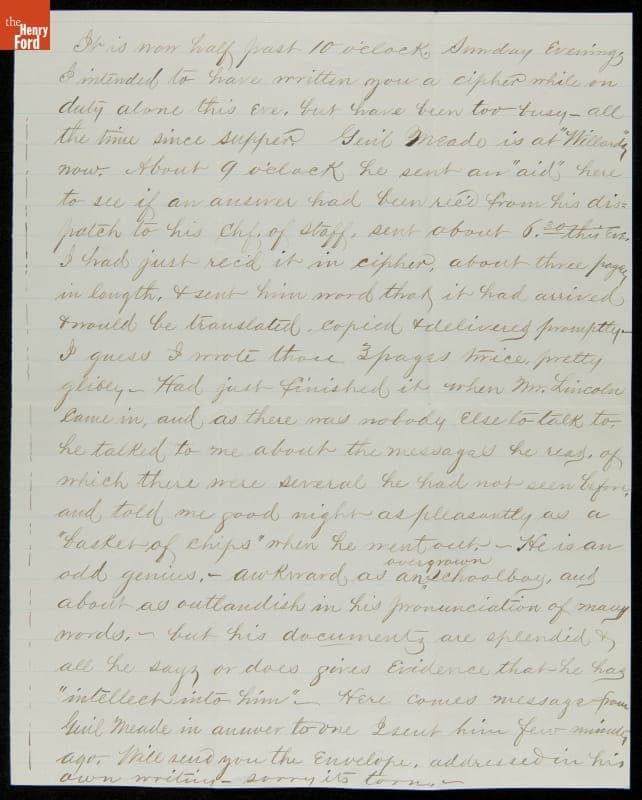 the
Henry
Ford
It is now half past 10 o'clock, Sunday Evening,
I intended to have written you a cipher while on
duty alone this Eve. but have been too busy – all
the time since supper. Genl Meade is at "Willards"
now. About 9 o'clock he sent an "aid" here
to see if an answer had been rec'd from his dis=
patch to his Chf. of Staff, sent about 6.30 this Eve.
I had just rec'd it in cipher, about three pages
in length, & sent him word that it had arrived
& would be translated, copied & delivered promptly –
I guess I wrote those 3 pages twice, pretty
glibly – Had just finished it when Mr. Lincoln
Came in, and as there was nobody Else to talk to,
he talked to me about the messages he read, of
which there were several he had not seen before,
and told me good night as pleasantly as a
"basket of chips" when he went out. – He is an
odd genius, – awkward as an overgrown schoolboy, and
about as outlandish in his pronunciation of many
words. – but his documents are splendid &
all he says or does gives Evidence that he has
"intellect into him" – Here comes message from
Genl Meade in answer to one I sent him few minutes
ago. Will send you the Envelope, addressed in his
own writing – sorry its torn. –